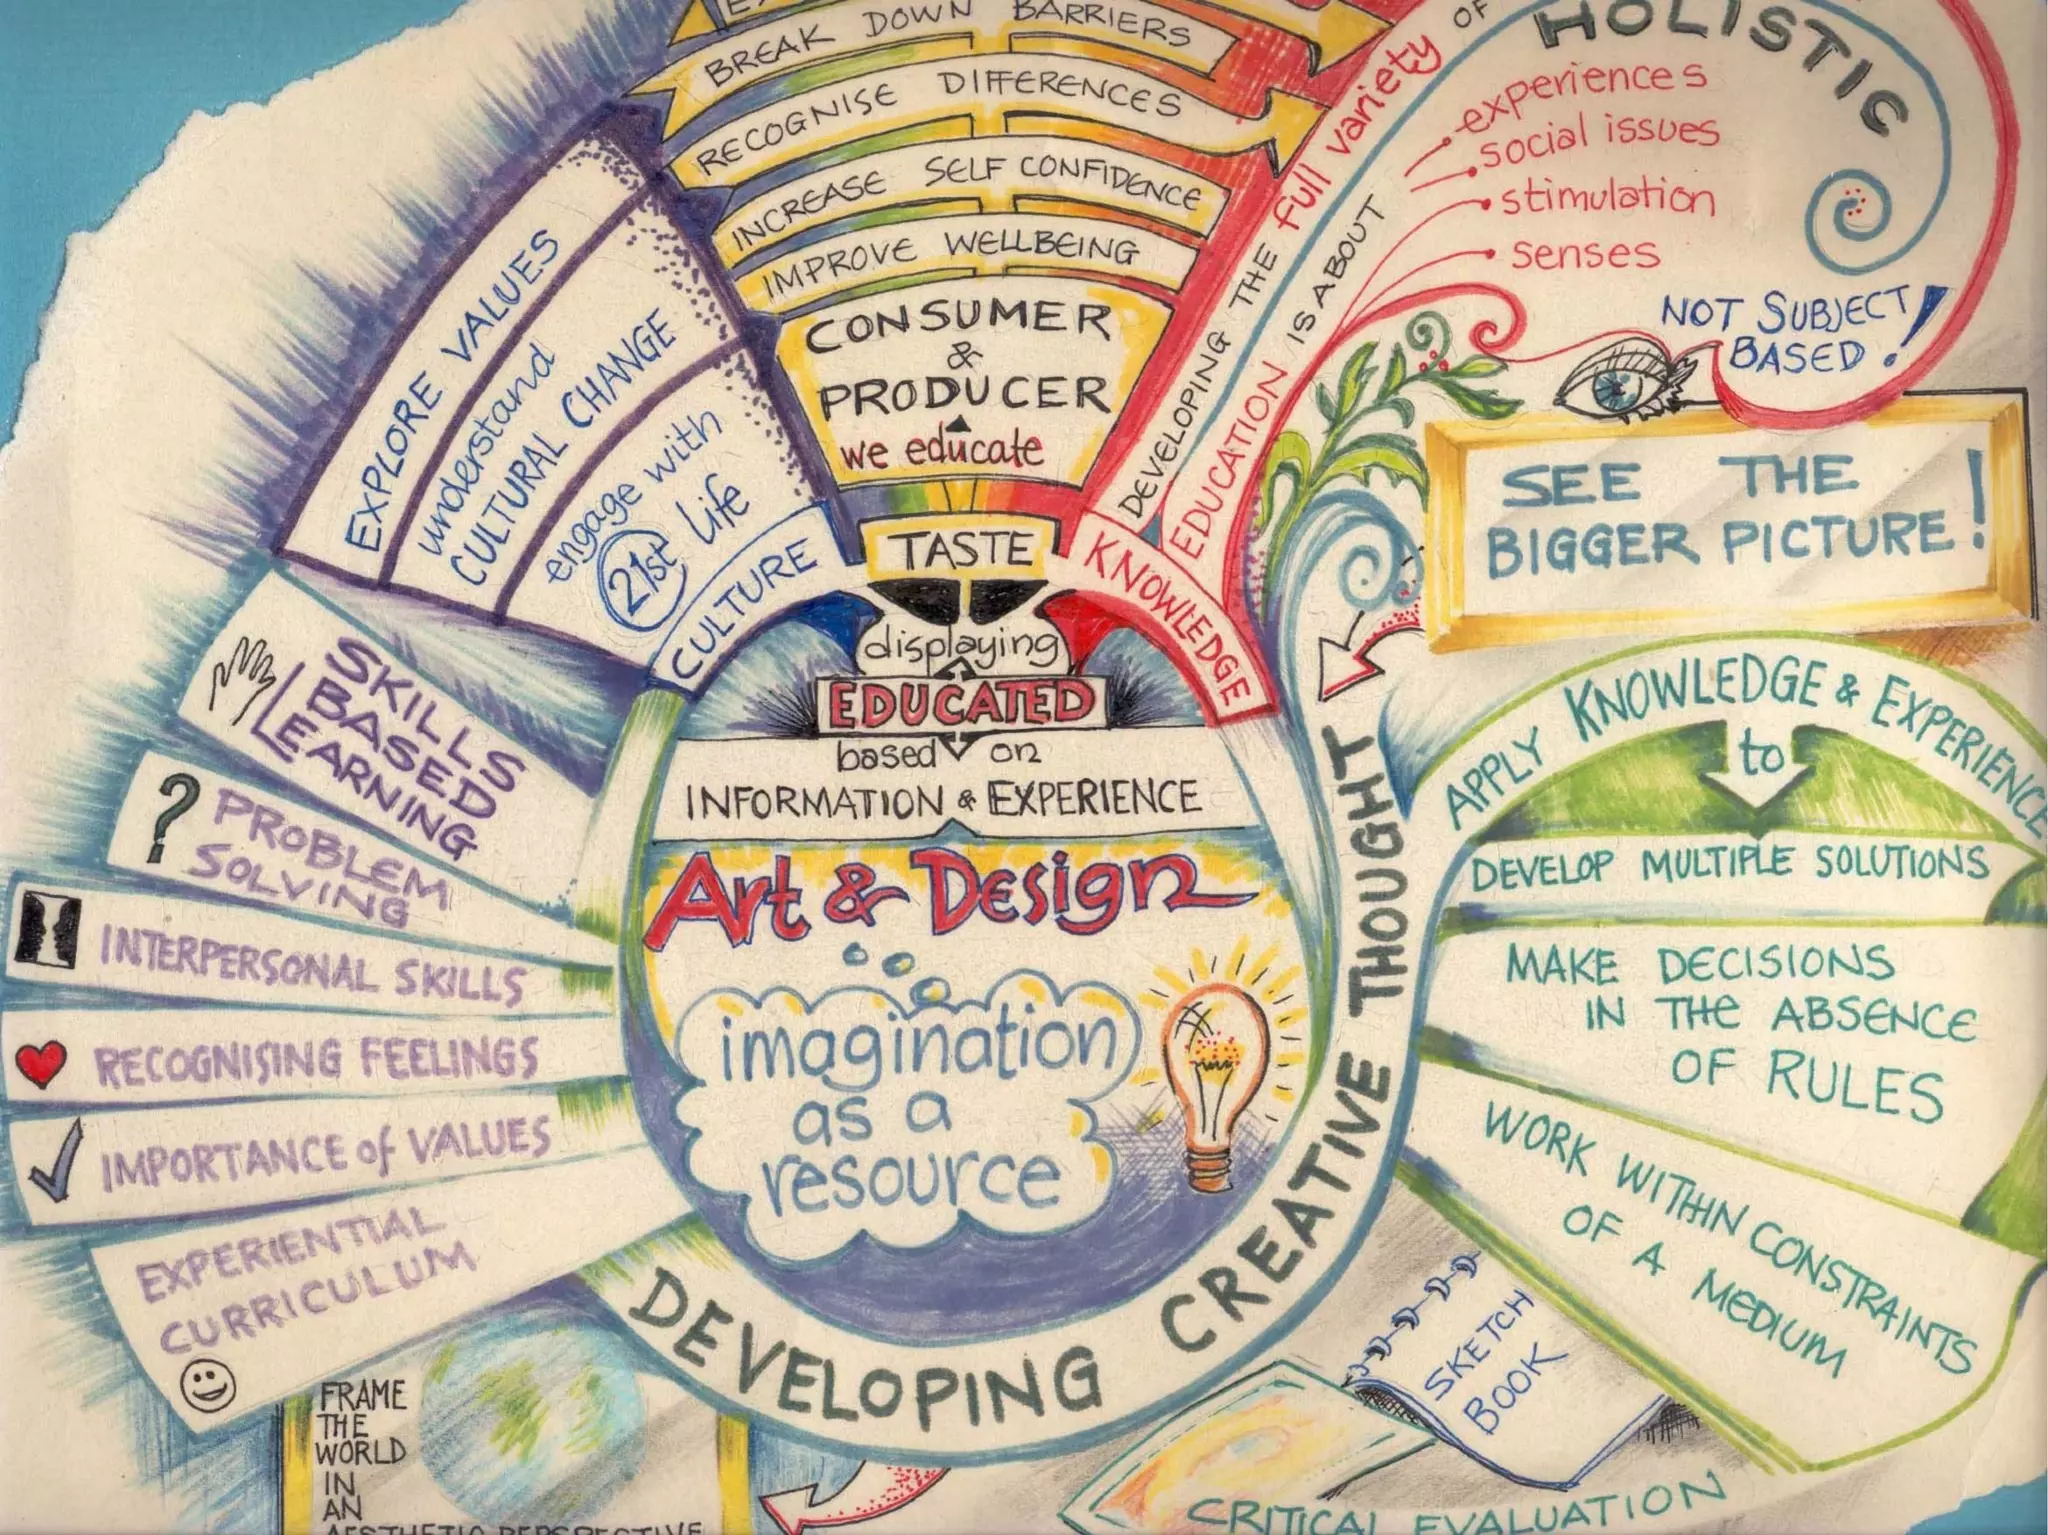 BREAK DOWN BARRIERS
RECOGNISE DIFFERENCES
INCREASE SELF CONFIDENCE
IMPROVE WELLBEING
CONSUMER
&
PRODUCER
we educate
TASTE
displaying
EDUCATED
based on
INFORMATION & EXPERIENCE
Art & Design
imagination
as a
resource
DEVELOPING CREATIVE THOUGHT
CULTURE
EXPLORE VALUES
understand
CULTURAL CHANGE
engage with
21st life
SKILLS
BASED
LEARNING
PROBLEM
SOLVING
INTERPERSONAL SKILLS
RECOGNISING FEELINGS
IMPORTANCE of VALUES
EXPERIENTIAL
CURRICULUM
FRAME
THE
WORLD
IN
AN
AESTHETIC PERSPECTIVE
KNOWLEDGE
DEVELOPING THE full variety OF
EDUCATION IS ABOUT
HOLISTIC
experiences
social issues
stimulation
senses
NOT SUBJECT
BASED!
SEE THE
BIGGER PICTURE!
APPLY KNOWLEDGE & EXPERIENCE
to
DEVELOP MULTIPLE SOLUTIONS
MAKE DECISIONS
IN THE ABSENCE
OF RULES
WORK WITHIN CONSTRAINTS
OF A MEDIUM
SKETCH
BOOK
CRITICAL EVALUATION